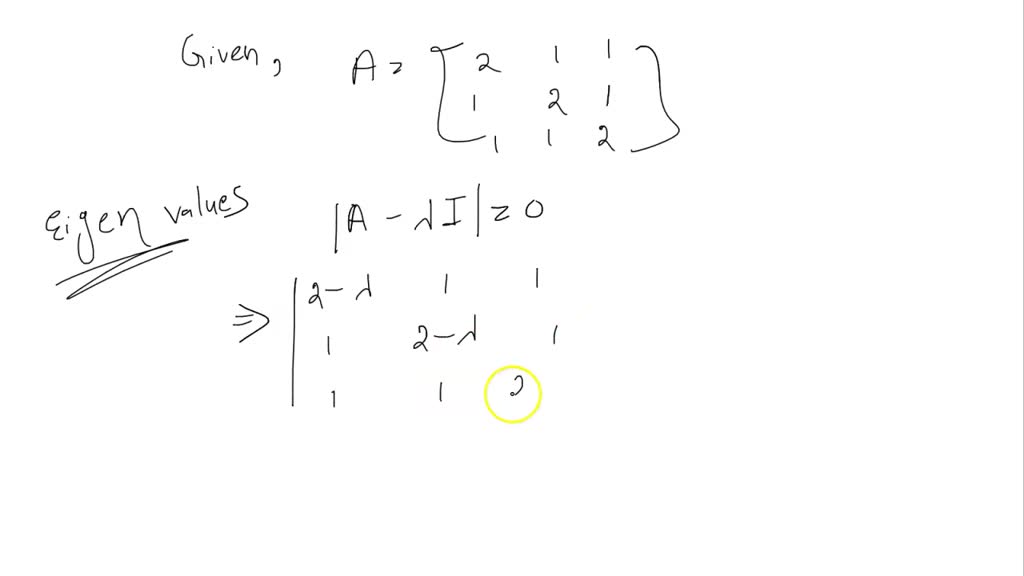 Given, A = [ 2 1 1
1 2 1
1 1 2 ]
Eigen values
|A - λI| = 0
⇒ | 2-λ 1 1
1 2-λ 1
1 1 2